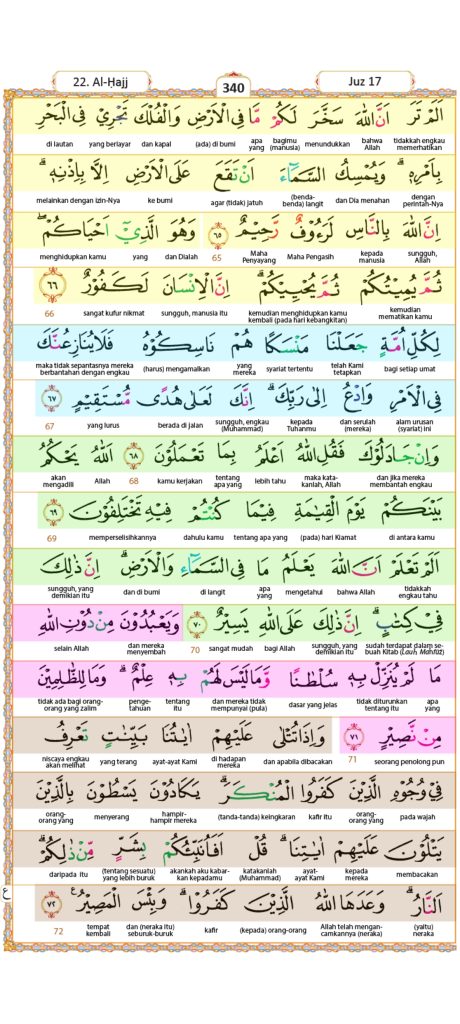 22. Al-Ḥajj
340
Juz 17
اَلَمْ تَرَ اَنَّ اللّٰهَ سَخَّرَ لَكُمْ مَّا فِى الْاَرْضِ وَالْفُلْكَ تَجْرِيْ فِى الْبَحْرِ
tidakkah engkau memerhatikan bahwa Allah menundukkan bagimu (manusia) apa yang (ada) di bumi dan kapal yang berlayar di lautan
بِاَمْرِهٖۗ وَيُمْسِكُ السَّمَاۤءَ اَنْ تَقَعَ عَلَى الْاَرْضِ اِلَّا بِاِذْنِهٖۗ
dengan perintah-Nya dan Dia menahan (benda-benda) langit agar (tidak) jatuh ke bumi melainkan dengan izin-Nya
اِنَّ اللّٰهَ بِالنَّاسِ لَرَءُوْفٌ رَّحِيْمٌ ٦٥ وَهُوَ الَّذِيْٓ اَحْيَاكُمْۖ
sungguh, Allah kepada manusia Maha Pengasih Maha Penyayang 65 dan Dialah yang menghidupkan kamu
ثُمَّ يُمِيْتُكُمْ ثُمَّ يُحْيِيْكُمْۗ اِنَّ الْاِنْسَانَ لَكَفُوْرٌ ٦٦
kemudian mematikan kamu kemudian menghidupkan kamu kembali (pada hari kebangkitan) sungguh, manusia itu sangat kufur nikmat 66
لِكُلِّ اُمَّةٍ جَعَلْنَا مَنْسَكًا هُمْ نَاسِكُوْهُ فَلَا يُنَازِعُنَّكَ
bagi setiap umat telah Kami tetapkan syariat tertentu yang mereka (harus) mengamalkan maka tidak sepantasnya mereka berbantahan dengan engkau
فِى الْاَمْرِ وَادْعُ اِلٰى رَبِّكَۗ اِنَّكَ لَعَلٰى هُدًى مُّسْتَقِيْمٍ ٦٧
dalam urusan (syariat) ini dan serulah (mereka) kepada Tuhanmu sungguh, engkau (Muhammad) berada di jalan yang lurus 67
وَاِنْ جَادَلُوْكَ فَقُلِ اللّٰهُ اَعْلَمُ بِمَا تَعْمَلُوْنَ ٦٨ اَللّٰهُ يَحْكُمُ
dan jika mereka membantah engkau maka katakanlah, Allah lebih tahu tentang apa yang kamu kerjakan 68 Allah akan mengadili
بَيْنَكُمْ يَوْمَ الْقِيٰمَةِ فِيْمَا كُنْتُمْ فِيْهِ تَخْتَلِفُوْنَ ٦٩
di antara kamu (pada) hari Kiamat tentang apa yang dahulu kamu memperselisihkannya 69
اَلَمْ تَعْلَمْ اَنَّ اللّٰهَ يَعْلَمُ مَا فِى السَّمَاۤءِ وَالْاَرْضِۗ اِنَّ ذٰلِكَ
tidakkah engkau tahu bahwa Allah mengetahui apa yang di langit dan di bumi sungguh, yang demikian itu
فِيْ كِتٰبٍۗ اِنَّ ذٰلِكَ عَلَى اللّٰهِ يَسِيْرٌ ٧٠ وَيَعْبُدُوْنَ مِنْ دُوْنِ اللّٰهِ
sudah terdapat dalam sebuah Kitab (Lauh Mahfuz) sungguh, yang demikian itu bagi Allah sangat mudah 70 dan mereka menyembah selain Allah
مَا لَمْ يُنَزِّلْ بِهٖ سُلْطٰنًا وَّمَا لَيْسَ لَهُمْ بِهٖ عِلْمٌۗ وَمَا لِلظّٰلِمِيْنَ
apa yang tidak diturunkan tentang itu dasar yang jelas dan mereka tidak mempunyai (pula) tentang itu pengetahuan tidak ada bagi orang-orang yang zalim
مِنْ نَّصِيْرٍ ٧١ وَاِذَا تُتْلٰى عَلَيْهِمْ اٰيٰتُنَا بَيِّنٰتٍ تَعْرِفُ
seorang penolong pun 71 dan apabila dibacakan di hadapan mereka ayat-ayat Kami yang terang niscaya engkau akan melihat
فِيْ وُجُوْهِ الَّذِيْنَ كَفَرُوا الْمُنْكَرَۗ يَكَادُوْنَ يَسْطُوْنَ بِالَّذِيْنَ
pada wajah orang-orang yang kafir itu (tanda-tanda) keingkaran hampir-hampir mereka menyerang orang-orang yang
يَتْلُوْنَ عَلَيْهِمْ اٰيٰتِنَاۗ قُلْ اَفَاُنَبِّئُكُمْ بِشَرٍّ مِّنْ ذٰلِكُمْۗ
membacakan kepada mereka ayat-ayat Kami katakanlah (Muhammad) akankah aku kabarkan kepadamu (tentang sesuatu) yang lebih buruk daripada itu
اَلنَّارُۗ وَعَدَهَا اللّٰهُ الَّذِيْنَ كَفَرُوْاۗ وَبِئْسَ الْمَصِيْرُ ٧٢ ع
(yaitu) neraka Allah telah mengancamkannya (neraka) (kepada) orang-orang kafir dan (neraka itu) seburuk-buruk tempat kembali 72